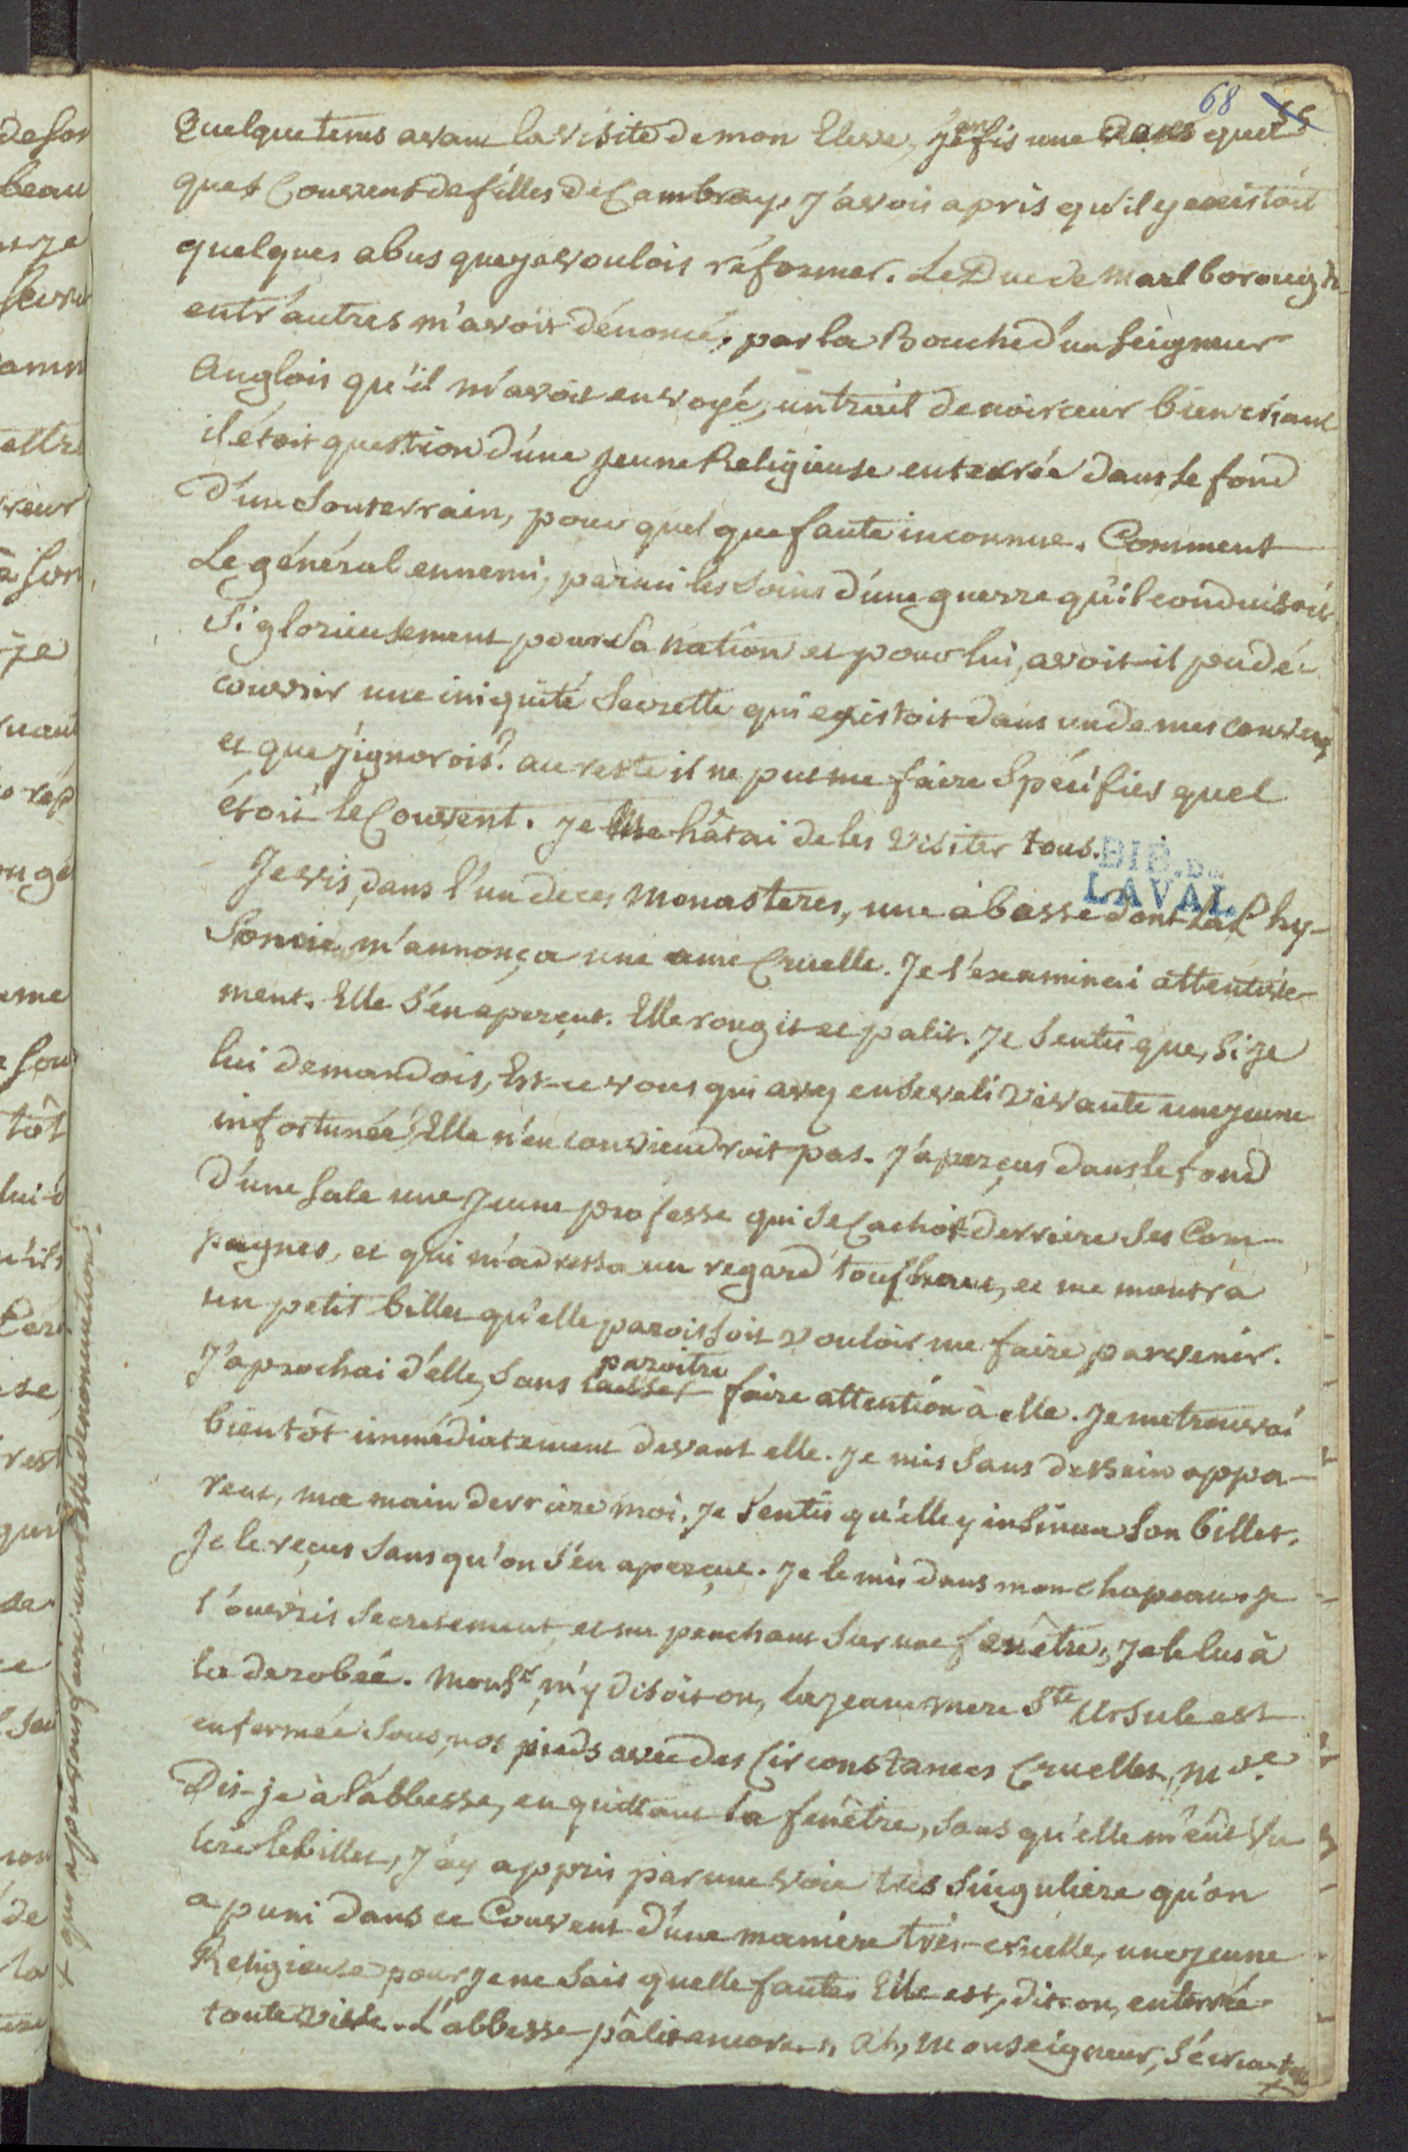 68 55
Quelque tems avant la visite de mon Eleve, j'en fis une dans quel
ques Couvent de filles de Cambray. J'avois apris qu'il y existoit
quelques abus que je voulois réformer. Le Duc de Marlborough
entr'autres m'avoit dénoncé, par la Bouche d'un Seigneur
Anglois qu'il m'avoit envoyé, un trait de noirceur bien criant
il étoit question d'une jeune Religieuse enterrée dans le fond
d'un Souterrain, pour quelque faute inconnue. Comment
Le général ennemi, parmi les soins d'une guerre qu'il conduisoit
Si glorieusement pour sa nation et pour lui, avoit-il pu dé-
couvrir une iniquité Secrette qui existoit dans un de mes couvens
et que j'ignorois? au reste il ne put me faire Spécifier quel
étoit le Couvent. je me hâtai de les visiter tous.
BIB. DE LAVAL
Je vis, dans l'un de ces monasteres, une abesse dont la Phy-
sonie m'annonça une ame Cruelle. Je l'examinai attentive-
ment. Elle s'en aperçut. Elle rougit et palit. Je sentis que, si je
lui demandois, Est-ce vous qui avez enseveli vivante une jeune
infortunée, Elle n'en conviendroit pas. J'aperçus dans le fond
d'une Sale une jeune professe qui se Cachoit derriere ses Com-
pagnes, et qui m'adressa un regard touchant, et me montra
un petit billet qu'elle paroissoit vouloir me faire parvenir.
J'aprochai d'elle, sans laisser paroitre faire attention à elle. Je me trouvai
bientôt immédiatement devant elle. Je mis sans dessein appa-
rent, ma main derriere moi. Je sentis qu'elle y insinua son billet.
Je le reçus sans qu'on s'en aperçut. Je le mis dans mon chapeau. Je
l'ouvris secretement, et me penchant sur une fenêtre, je le lus à
la derobée. Monsr, m'y disoit on, la jeune mere Ste Ursule est
enfermée sous nos pieds avec des Circonstances Cruelles, Mde
Dis-je à l'abbesse, en quittant la fenêtre, sans qu'elle m'eût vu
lire le billet, J'ay appris par une voie très singuliere qu'on
a puni dans ce Couvent d'une maniere très-cruelle, une jeune
Religieuse pour je ne sais quelle faute. Elle est, dit-on, enterrée
toute vive. L'abbesse pâlit encore. Ah, Monseigneur, s'écria-t-elle